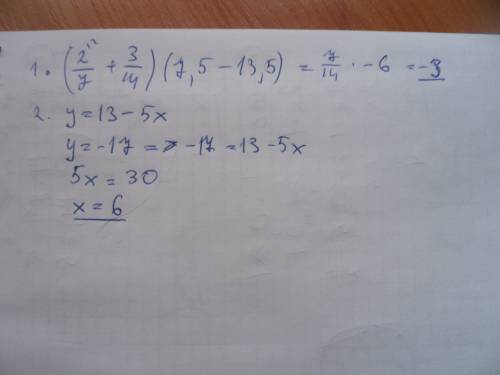 1. (2²/7 + 3/14) (7,5 – 13,5) = 7/14 · –6 = –3
2. y = 13 – 5x
y = –17 => –17 = 13 – 5x
5x = 30
x = 6